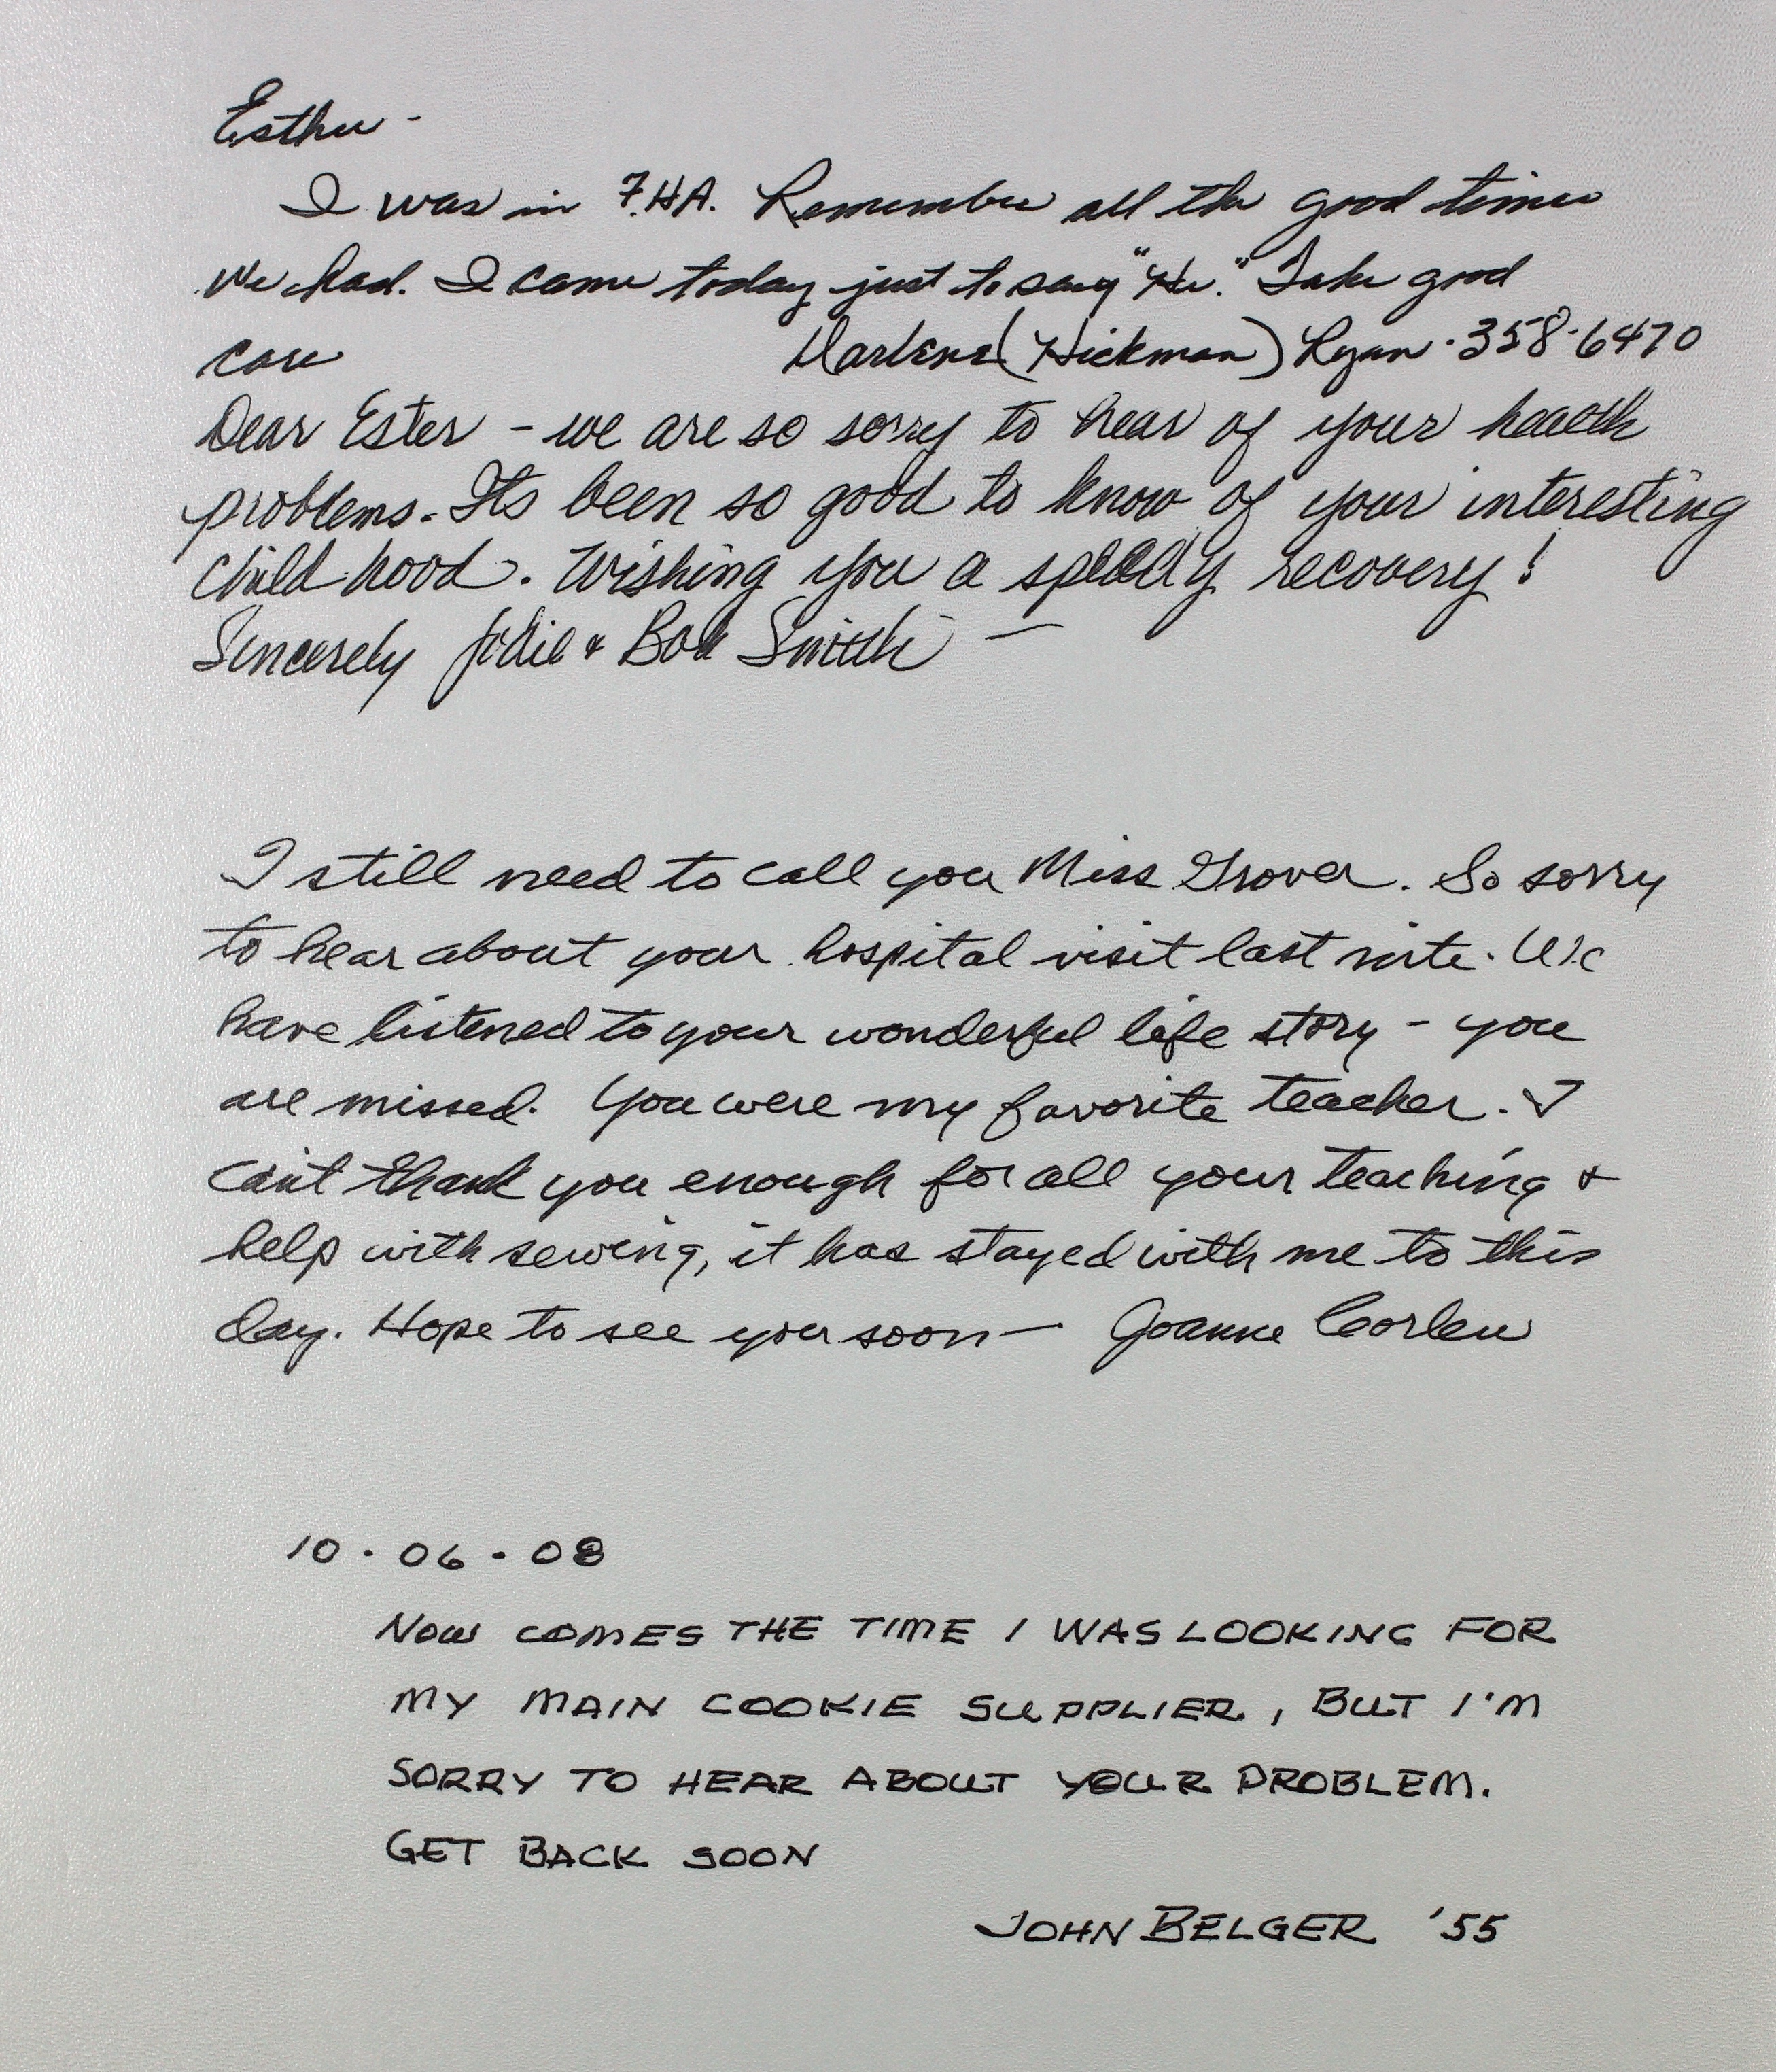 Esther -
I was in F.H.A. Remember all the good times
we had. I came today just to say "Hi." Take good
care Darlene (Hickman) Ryan · 358·6470
Dear Ester - we are so sorry to hear of your health
problems. Its been so good to know of your interesting
child hood. Wishing you a speedy recovery!
Sincerely Jodie & Bob Smith —
I still need to call you Miss Grover. So sorry
to hear about your hospital visit last nite. We
have listened to your wonderful life story - you
are missed. You were my favorite teacher. I
can't thank you enough for all your teaching &
help with sewing, it has stayed with me to this
day. Hope to see you soon — Joanne
10 · 06 · 08
NOW COMES THE TIME I WAS LOOKING FOR
MY MAIN COOKIE SUPPLIER, BUT I'M
SORRY TO HEAR ABOUT YOUR PROBLEM.
GET BACK SOON
JOHN BELGER '55